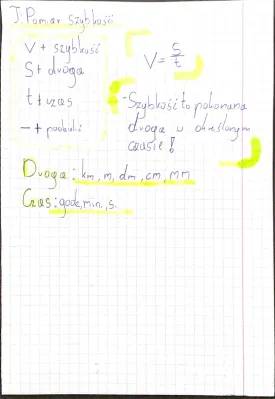 T: Pomiar szybkości
V + szybkość
S + droga
t + czas
V = s/t
- Szybkość to pokonana
droga w określonym
czasie!
Droga: km, m, dm, cm, mm
Czas: godz, min, s.